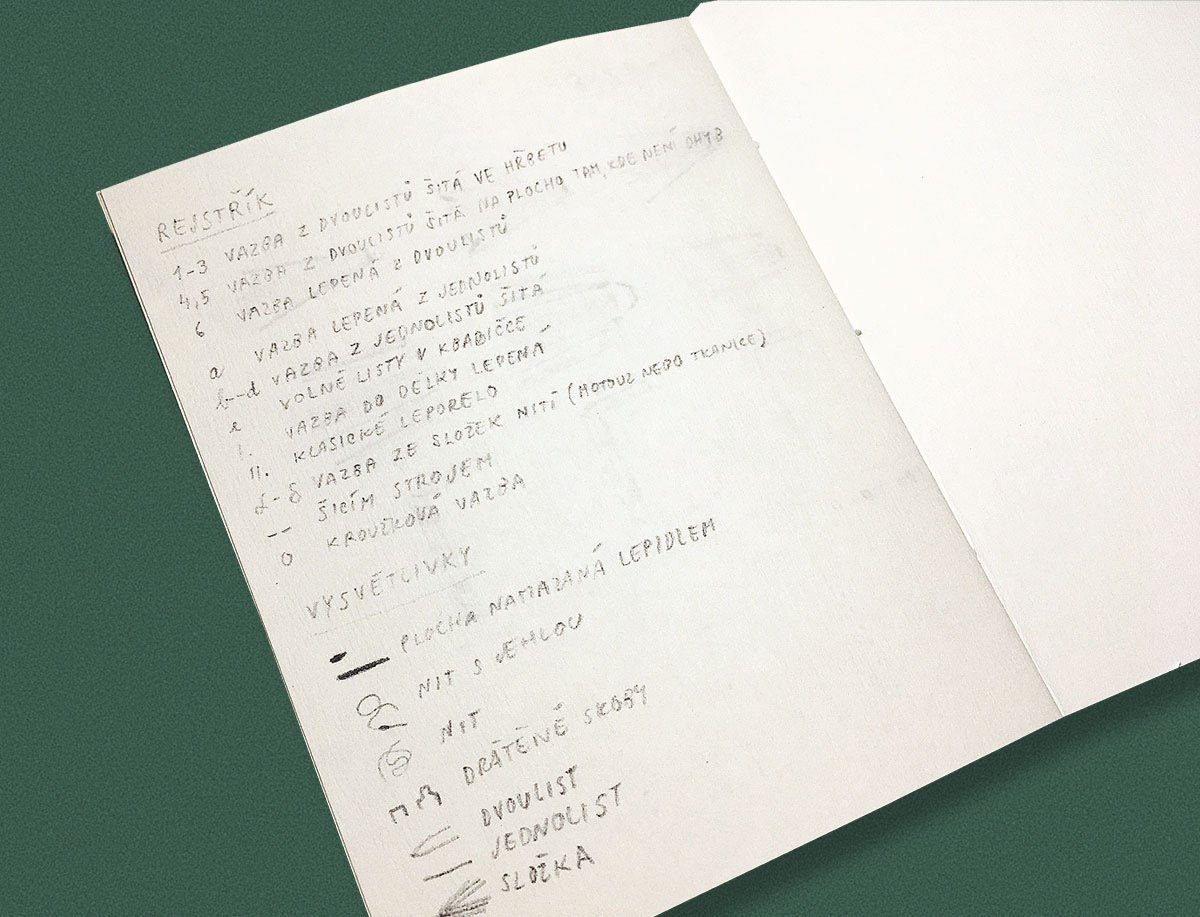 REJSTŘÍK
1-3 VAZBA Z DVOULISTŮ ŠITÁ VE HŘBETU
4,5 VAZBA Z DVOULISTŮ ŠITÁ NA PLOCHO TAM, KDE NENÍ OHYB
6 VAZBA LEPENÁ Z DVOULISTŮ
a VAZBA LEPENÁ Z JEDNOLISTŮ
b-d VAZBA Z JEDNOLISTŮ ŠITÁ
e VOLNÉ LISTY V KRABIČCE
I. VAZBA DO DÉLKY LEPENÁ
II. KLASICKÉ LEPORELO
α-δ VAZBA ZE SLOŽEK NITÍ (MOTOUZ NEBO TKANICE)
-- ŠICÍM STROJEM
O KROUŽKOVÁ VAZBA
VYSVĚTLIVKY
PLOCHA NAMAZANÁ LEPIDLEM
NIT S JEHLOU
NIT
DRÁTĚNÉ SKOBY
DVOULIST
JEDNOLIST
SLOŽKA